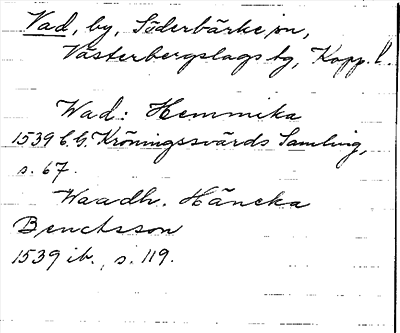 Vad, by, Söderbärke sn,
Västerbergslags tg, Kopp. l.
Wad: Hemmika
1539 C. G. Kröningssvärds Samling,
s. 67.
Waadh. Häncka
Benctsson
1539 ib., s. 119.